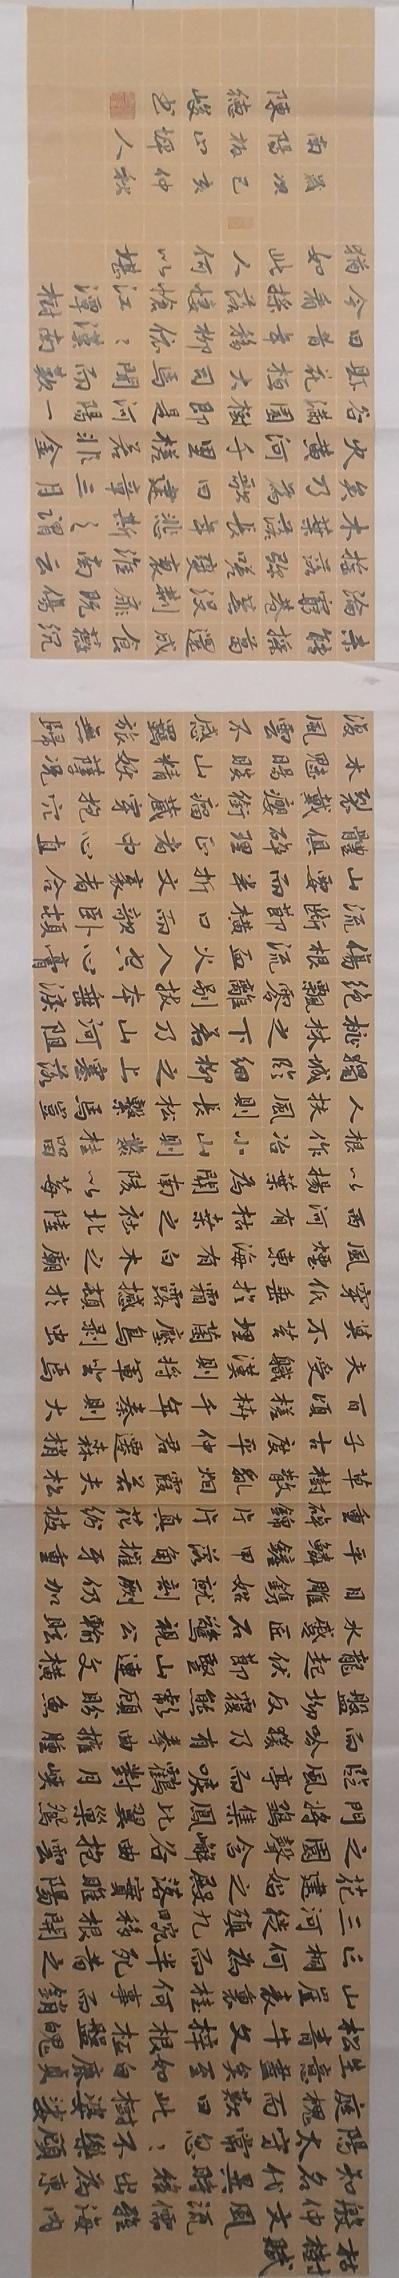 枯樹賦
殷仲文風流儒雅海內
知名代異時移出為東
陽太守常忽忽不樂顧
庭槐而歎曰此樹婆娑
生意盡矣至如白鹿貞
松青牛文梓根柢盤魄
山崖表裏桂何事而銷
亡桐何為而半死昔之
三河徙植九畹移根開
花建始之殿落實睢陽
之園聲含嶰谷曲抱雲
門將雛集鳳比翼巢鴛
臨風亭而唳鶴對月峽
而吟猿乃有拳曲擁腫
盤坳反覆熊彪顧盼魚
龍起伏節豎山連文橫
水蹙匠石驚視公輸眩
目雕鐫始就剞劂仍加
平鱗鏟甲落角摧牙重
重碎錦片片真花紛披
草樹散亂煙霞若夫松
子古度平仲君遷森梢
百頃槎枿千年秦則大
夫受職漢則將軍坐焉
莫不苔埋菌壓鳥剝虫
穿低垂於霜露撼頓於
風煙東海有白木之廟
西河有枯桑之社北陸
以楊葉為關南陵以莓
根作冶小山則叢桂留
人扶風則長松繫馬豈
獨城臨細柳之上塞落
桃林之下若乃山河阻
絕飄零離別拔本垂淚
傷根流血火入空心膏
流斷節橫洞口而敧臥頓
山要而半折文袤者合
體俱碎理正者中心直
裂戴癭銜瘤藏穿抱穴
木魅睗睒山精妖孽況
復風雲不感羈旅無歸
未能採葛還成食薇沉
淪窮巷蕪沒荊扉既傷
搖落彌嗟變衰淮南云
木葉落長年悲斯之謂
矣乃為歌曰建章三月
火黃河千里槎若非金
谷滿園樹即是河陽一
縣花桓大司馬聞而歎
曰昔年移柳依依漢南
今看搖落悽愴江潭樹
猶如此人何以堪
歲次己亥仲秋
南陽板山坪人
陳德峻書